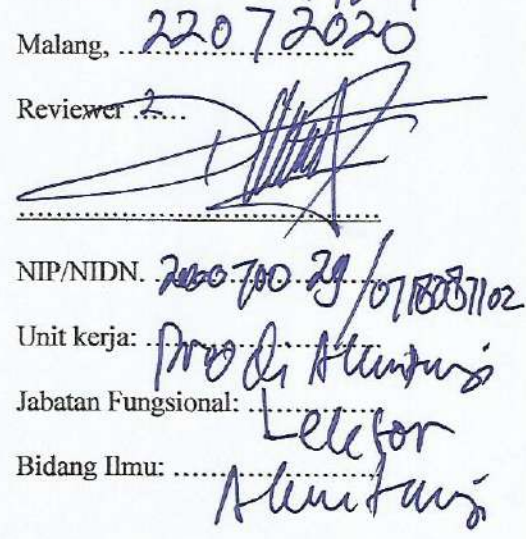 Malang, 22072020
Reviewer 2
NIP/NIDN. 200070029/0718087102
Unit kerja: Prodi Akuntansi
Jabatan Fungsional: Lektor
Bidang Ilmu: Akuntansi